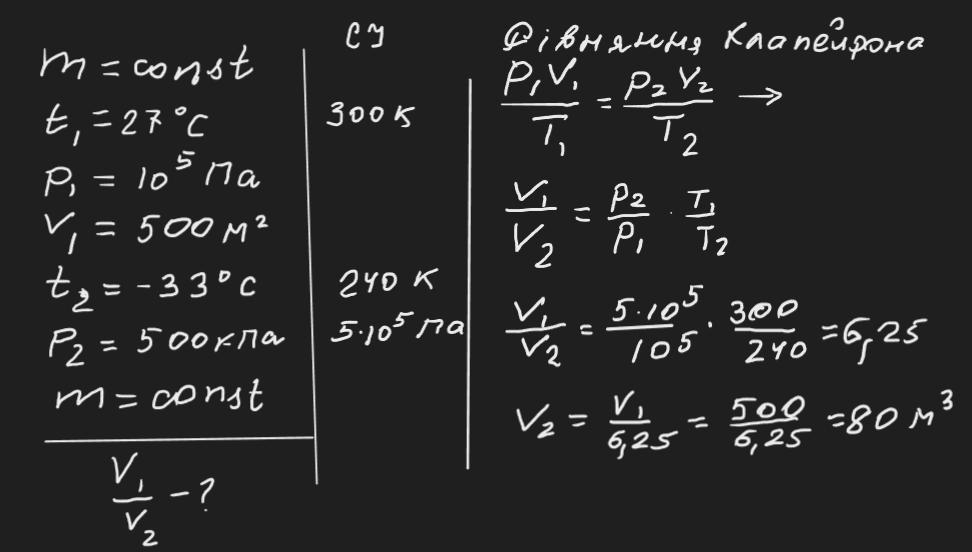 m = const
t₁ = 27°C
P₁ = 10⁵ Па
V₁ = 500 м²
t₂ = -33°C
P₂ = 500 кПа
m = const
V₁/V₂ - ?
СУ
300 К
240 К
5·10⁵ Па
Рівняння Клапейрона
P₁V₁/T₁ = P₂V₂/T₂ →
V₁/V₂ = P₂/P₁ · T₁/T₂
V₁/V₂ = 5·10⁵/10⁵ · 300/240 = 6,25
V₂ = V₁/6,25 = 500/6,25 = 80 м³